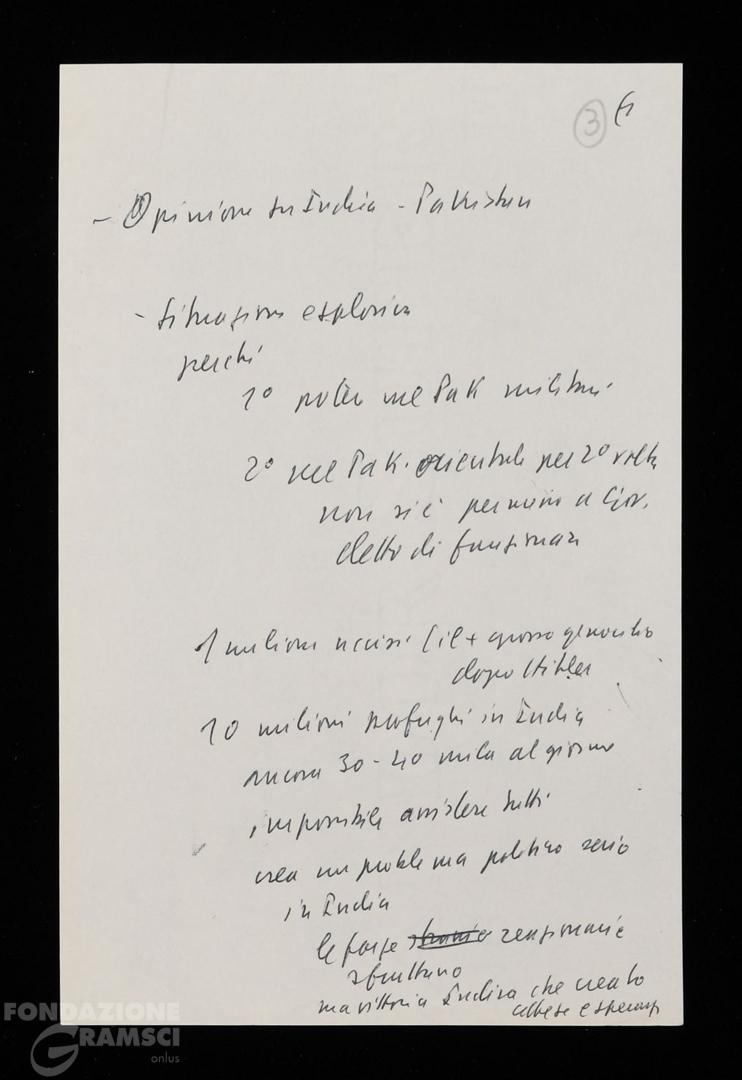 3 6
- Opinione su India - Pakistan
- Situazione esplosiva
perché
1° potere nel Pak militari
2° nel Pak. orientale per 2° volta
non si è permesso a Gov.
eletto di funzionare
1 milione uccisi (il + grosso genocidio
dopo Hitler
10 milioni profughi in India
ancora 30-40 mila al giorno
impossibile assistere tutti
crea un problema politico serio
in India
le forze reazionarie
sfruttano
ma vittoria Indira che creato
attese e speranze
FONDAZIONE
GRAMSCI
onlus